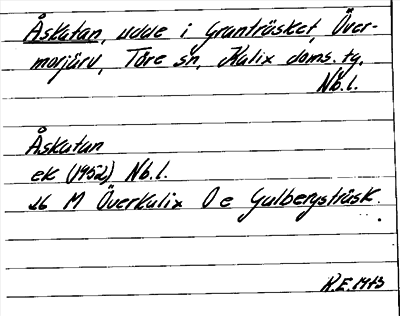 Åskatan, udde i Granträsket, Över-
morjärv, Töre sn, Kalix doms. tg,
Nb.l.
Åskatan
ek (1952) Nb.l.
26 M Överkalix O e Gulbergsträsk.
R.E. 1973